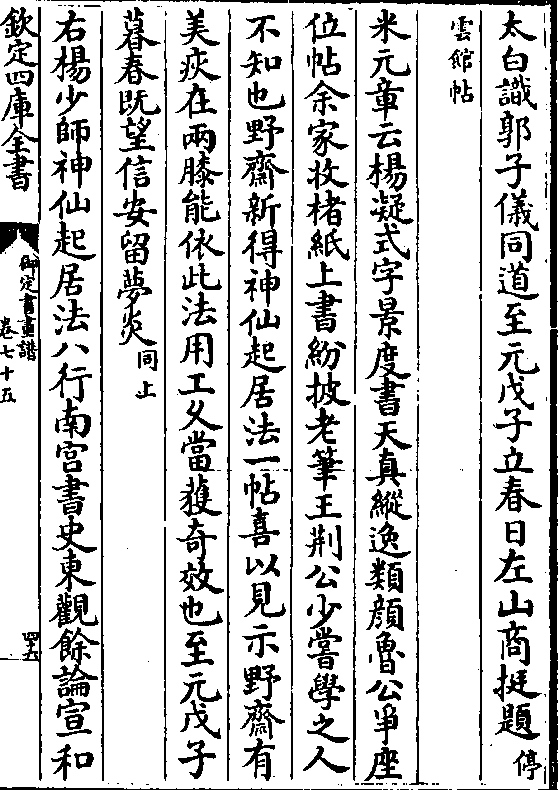 太白識郭子儀同道至元戊子立春日左山商挺題停
雲館帖
米元章云楊凝式字景度書天真縱逸類顔魯公爭座
位帖余家收楮紙上書紛披老筆王荆公少嘗學之人
不知也野齋新得神仙起居法一帖喜以見示野齋有
美疢在兩膝能依此法用工久當獲奇效也至元戊子
暮春既望信安留夢炎同上
右楊少師神仙起居法八行南宫書史東觀餘論宣和
欽定四庫全書
御定書畫譜
卷七十五